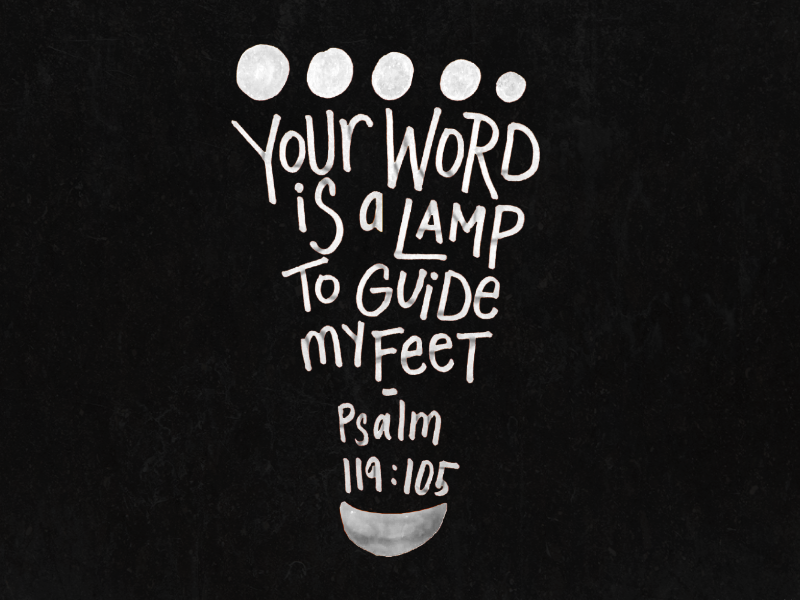 YOUr WORD
iS a LAMP
To GUiDe
myFeeT
-
Psalm
119:105